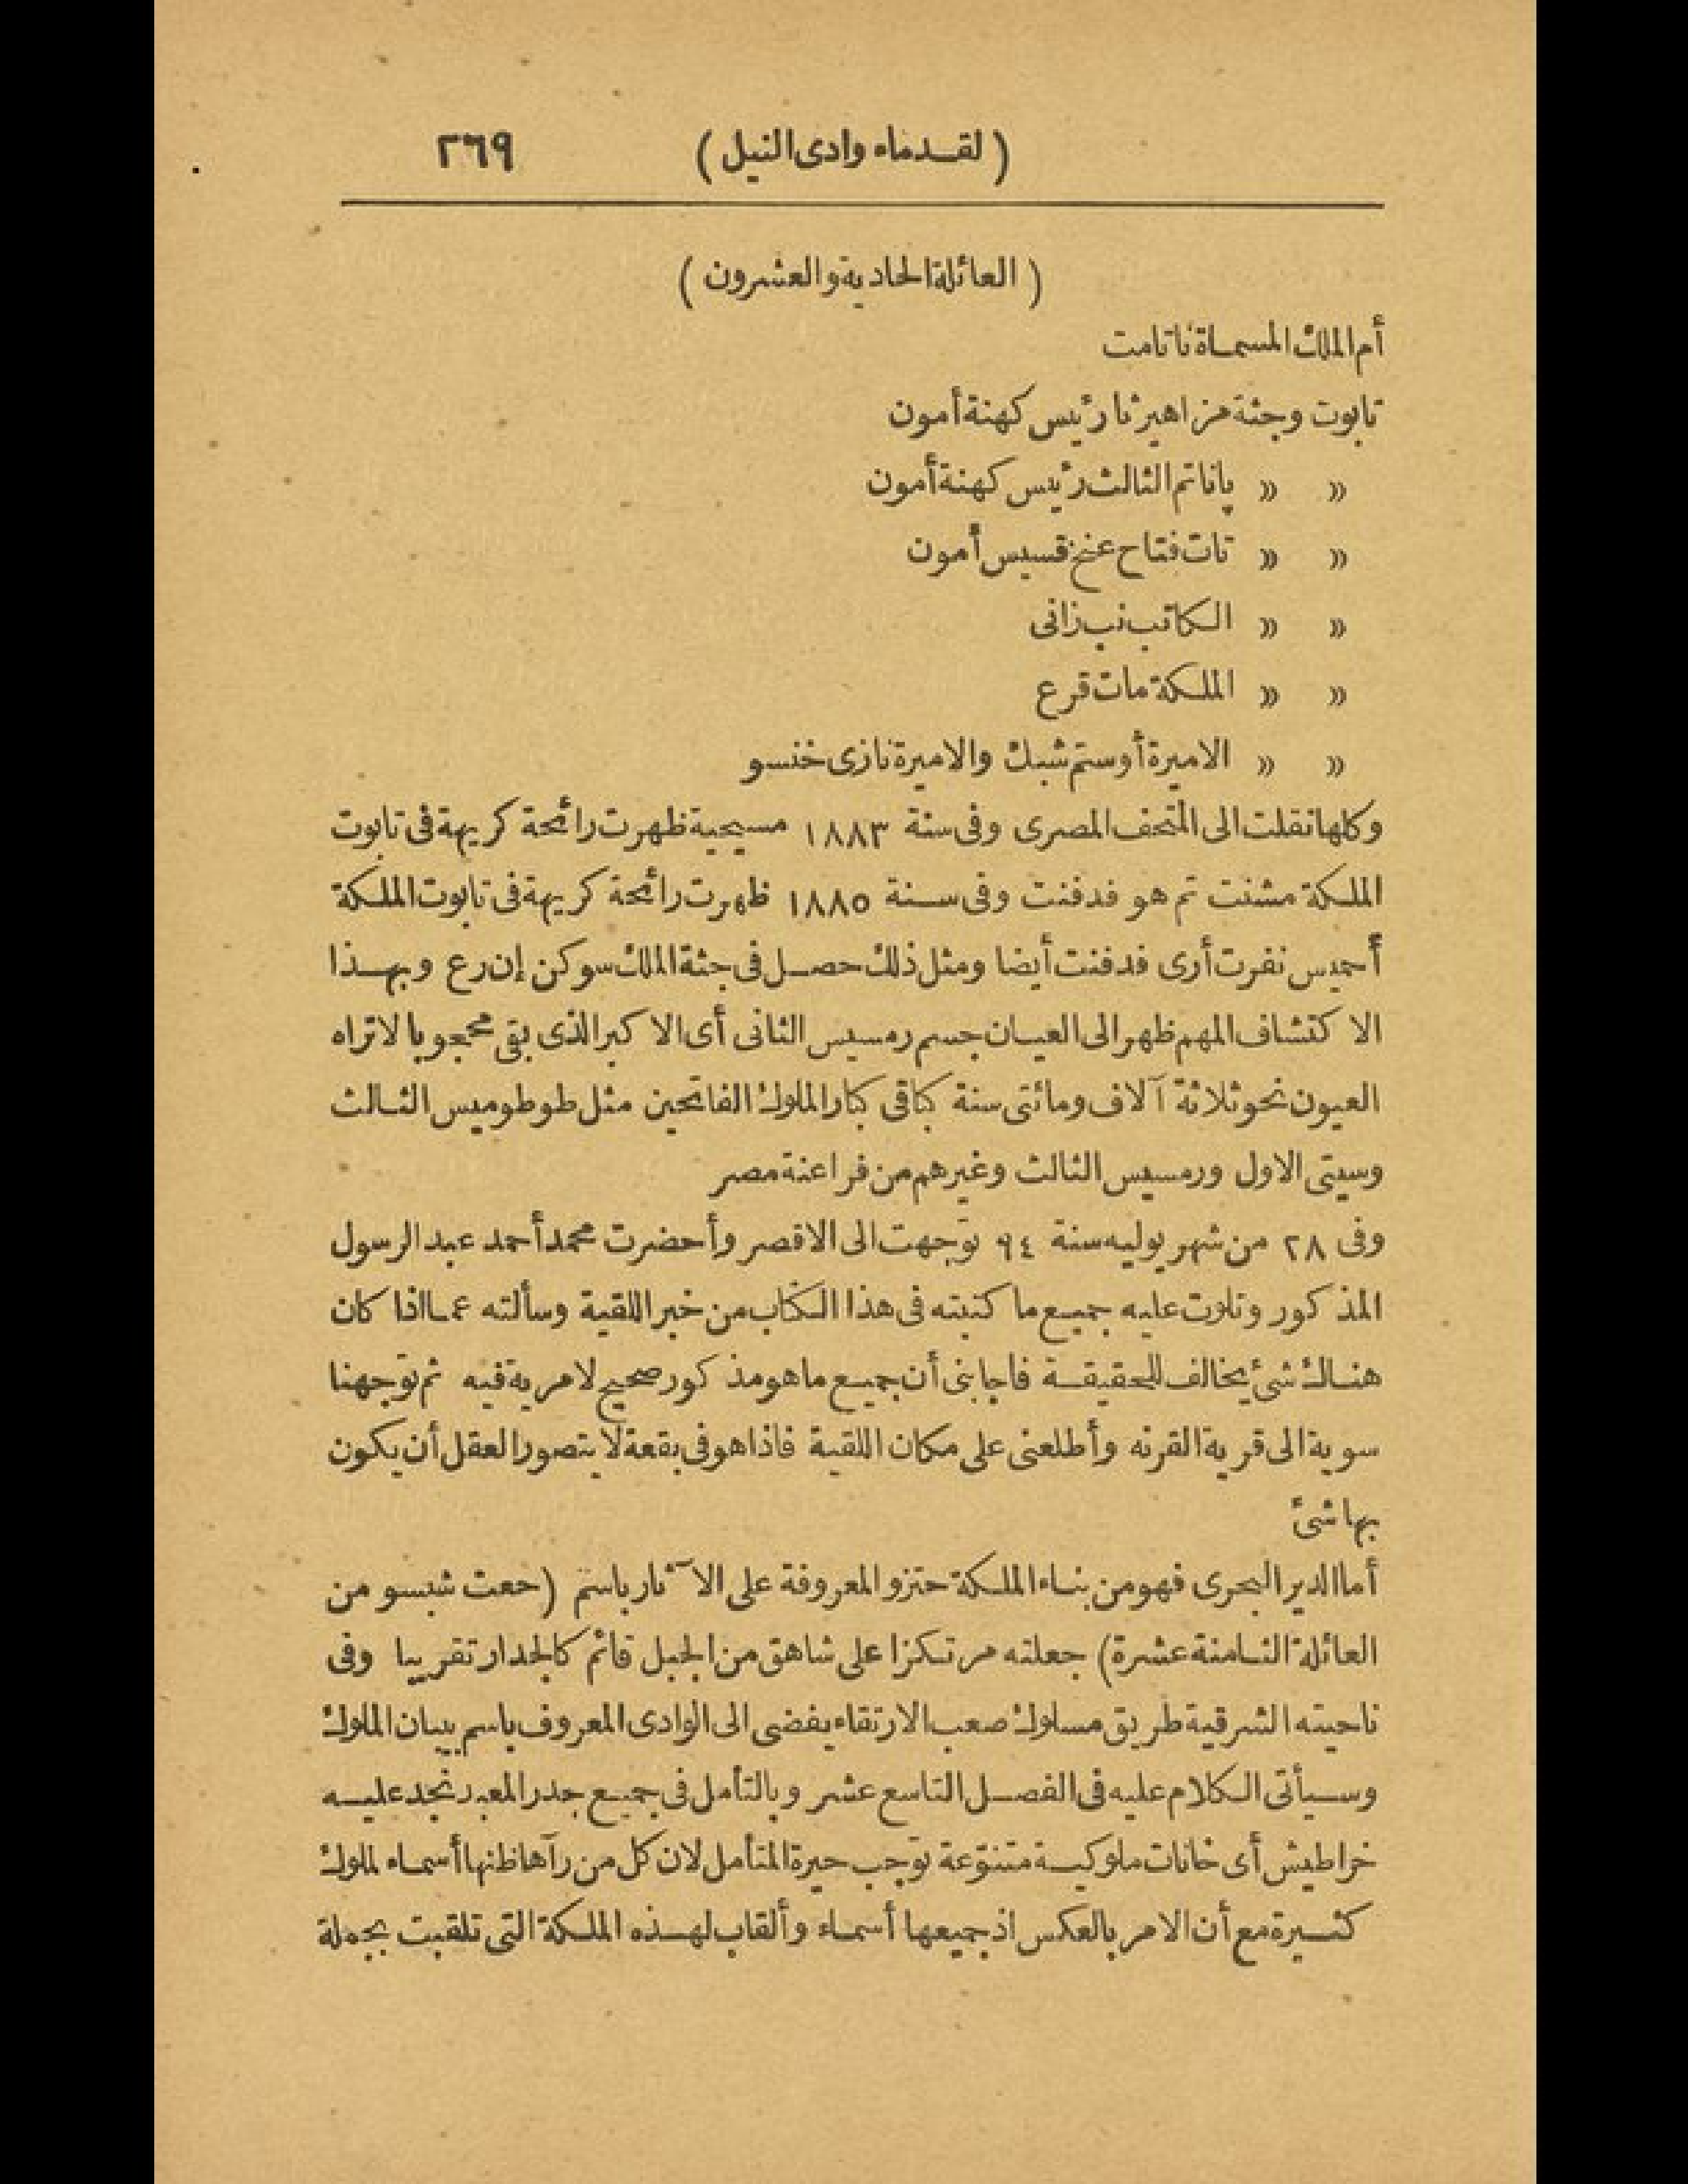 (لقدماء وادى النيل) ٢٦٩
(العائلة الحادية والعشرون)
أم الملك المسماة ناتامت
تابوت وجثة مزاهيرتا رئيس كهنة أمون
» » پاناتم الثالث رئيس كهنة أمون
» » تات فتاح عنخ قسيس أمون
» » الكاتب نب زانى
» » الملكة مات قرع
» » الاميرة أوستم شبك والاميرة نازى خنسو
وكلها نقلت الى المتحف المصرى وفى سنة ١٨٨٣ مسيحية ظهرت رائحة كريهة فى تابوت
الملكة مشنت تم هو فدفنت وفى سنة ١٨٨٥ ظهرت رائحة كريهة فى تابوت الملكة
أحميس نفرت أرى فدفنت أيضا ومثل ذلك حصل فى جثة الملك سوكن إن رع وبهذا
الاكتشاف المهم ظهر الى العيان جسم رمسيس الثانى أى الاكبر الذى بقى محجوبا لاتراه
العيون نحو ثلاثة آلاف ومائتى سنة كباقى كبار الملوك الفاتحين مثل طوطوميس الثالث
وسيتى الاول ورمسيس الثالث وغيرهم من فراعنة مصر
وفى ٢٨ من شهر يوليه سنة ٩٤ توجهت الى الاقصر وأحضرت محمد أحمد عبد الرسول
المذكور وتلوت عليه جميع ما كتبته فى هذا الكتاب من خبر اللقية وسألته عما اذا كان
هناك شئ يخالف للحقيقة فاجابنى أن جميع ما هو مذكور صحيح لامرية فيه ثم توجهنا
سوية الى قرية القرنه وأطلعنى على مكان اللقية فاذا هو فى بقعة لا يتصور العقل أن يكون
بها شئ
أما الدير البحرى فهو من بناء الملكة حتزو المعروفة على الآثار باسم (حعت شبسو من
العائلة الثامنة عشرة) جعلته مرتكزا على شاهق من الجبل قائم كالجدار تقريبا وفى
ناحيته الشرقية طريق مسلوك صعب الارتقاء يفضى الى الوادى المعروف باسم بيبان الملوك
وسيأتى الكلام عليه فى الفصل التاسع عشر وبالتأمل فى جميع جدر المعبد نجد عليه
خراطيش أى خانات ملوكية متنوّعة توجب حيرة المتأمل لان كل من رآها ظنها أسماء لملوك
كثيرة مع أن الامر بالعكس اذ جميعها أسماء وألقاب لهذه الملكة التى تلقبت بجملة